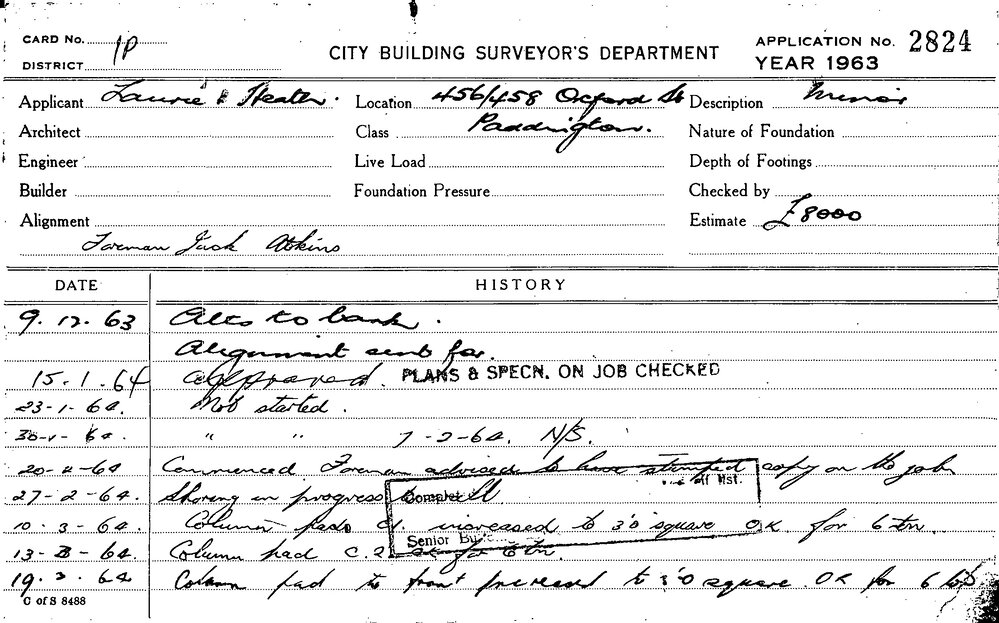 CARD No. 1P
DISTRICT
CITY BUILDING SURVEYOR'S DEPARTMENT
APPLICATION No. 2824
YEAR 1963
Applicant Laurie & Heath. Location 456/458 Oxford St Description Minor
Architect Class Paddington. Nature of Foundation
Engineer Live Load Depth of Footings
Builder Foundation Pressure Checked by
Alignment Estimate £8000
Foreman Jack Atkins
DATE HISTORY
9.12.63 Alts to bank.
Alignment sent for.
15.1.64 Approved. PLANS & SPECN. ON JOB CHECKED
23-1-64. Not started.
30-1-64. " " 7-2-64. N/S.
20-2-64 Commenced Foreman advised to have stamped copy on the job
off list.
27-2-64. Shoring in progress St
Complet
10.3-64. Column pads C1. increased to 3'0 square OK for 6 tn.
Senior By.
13-3-64. Column pad C.2 ok for 6 tn.
19.3.64 Column pad to front increased to 3'0 square OK for 6
C of S 8488